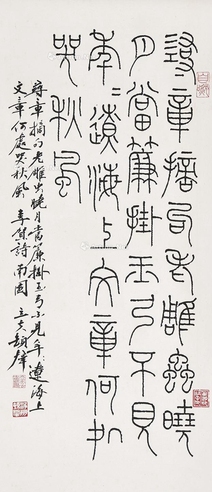 尋章摘句老雕蟲曉
月當簾掛玉弓不見
年〻遼海上文章何処
哭秋風
尋章摘句老雕虫曉月當簾掛玉弓不見年〻遼海上
文章何處哭秋風 李賀詩南園